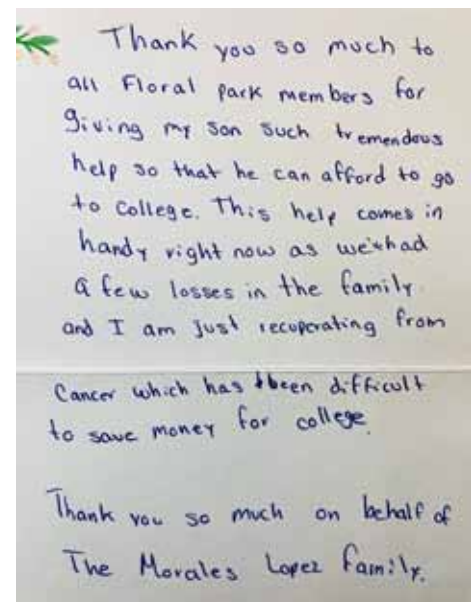 Thank you so much to
all Floral park members for
giving my son such tremendous
help so that he can afford to go
to college. This help comes in
handy right now as we had
a few losses in the family
and I am just recuperating from
Cancer which has been difficult
to save money for college.
Thank you so much on behalf of
The Morales Lopez family.